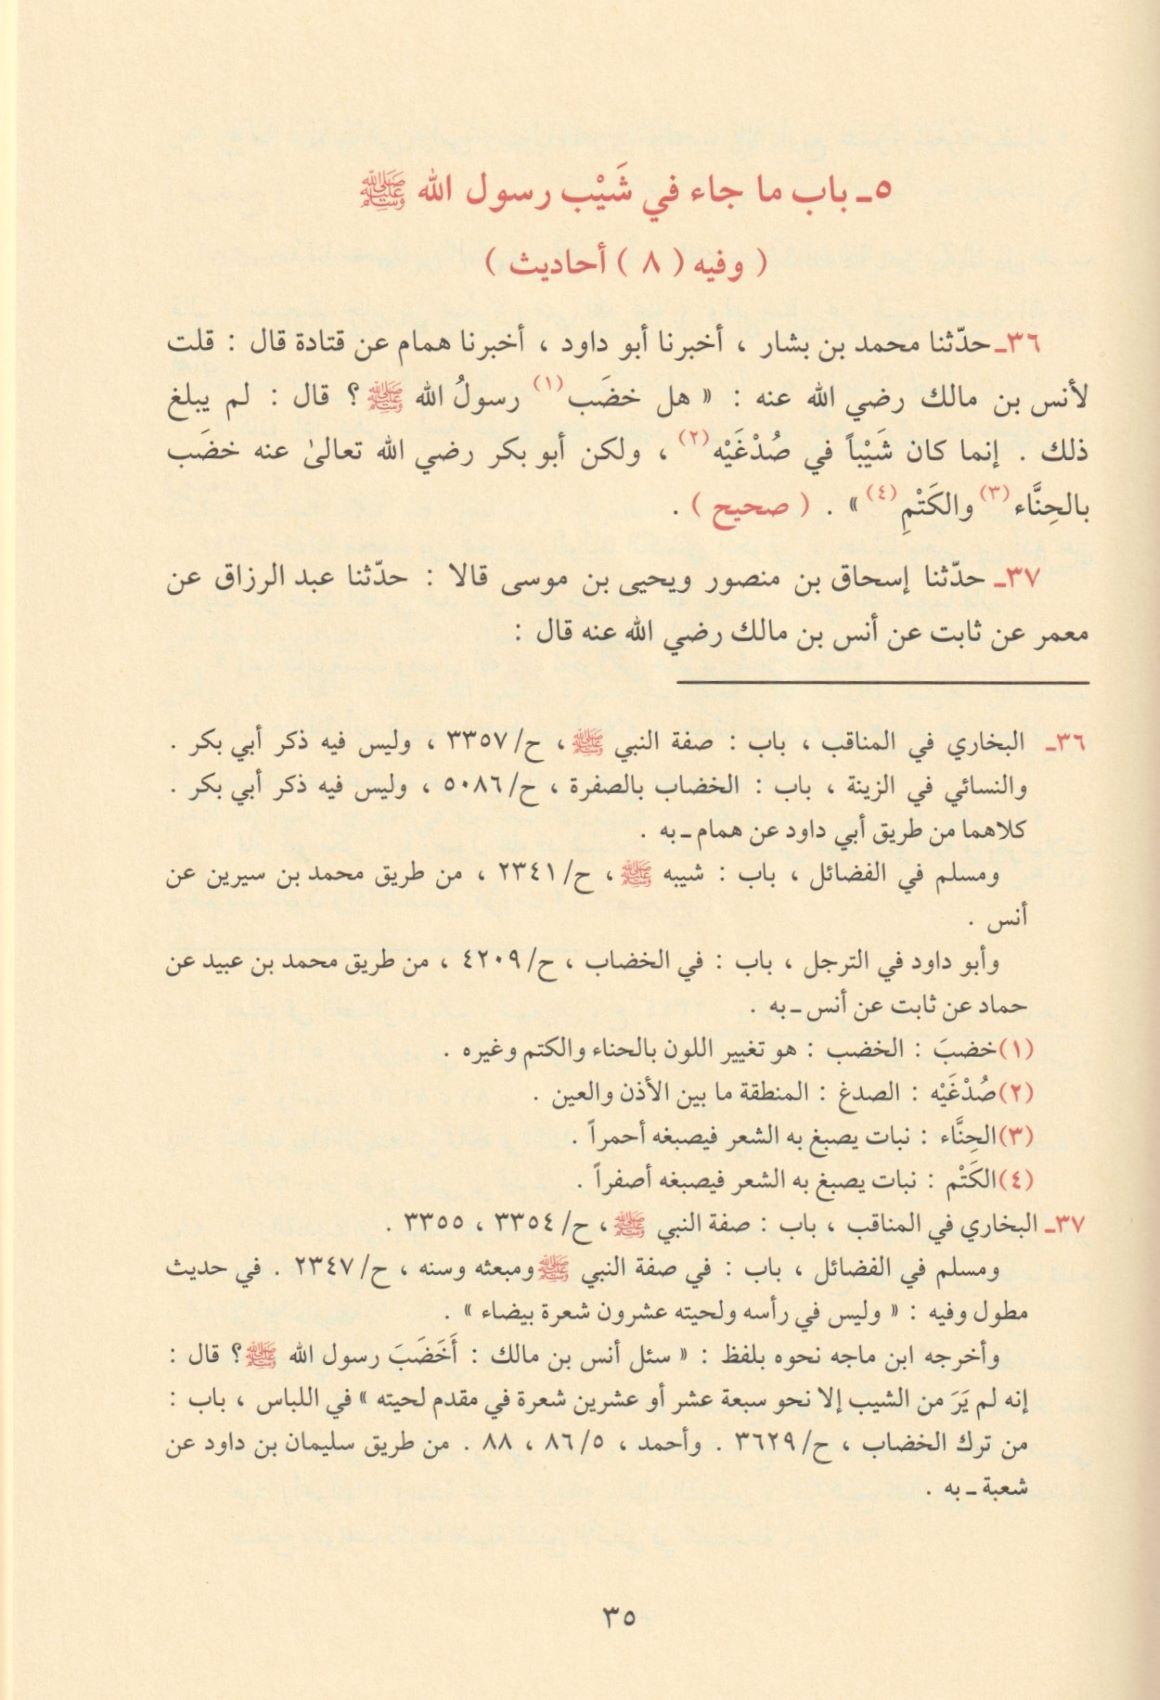 ٥ـ باب ما جاء في شَيْب رسول الله ﷺ
( وفيه ( ٨ ) أحاديث )
٣٦ـ حدّثنا محمد بن بشار ، أخبرنا أبو داود ، أخبرنا همام عن قتادة قال : قلت
لأنس بن مالك رضي الله عنه : « هل خضَب(١) رسولُ الله ﷺ ؟ قال : لم يبلغ
ذلك . إنما كان شَيْباً في صُدْغَيْه(٢) ، ولكن أبو بكر رضي الله تعالىٰ عنه خضَب
بالحِنَّاء(٣) والكَتْمِ(٤) » . ( صحيح ) .
٣٧ـ حدّثنا إسحاق بن منصور ويحيى بن موسى قالا : حدّثنا عبد الرزاق عن
معمر عن ثابت عن أنس بن مالك رضي الله عنه قال :
٣٦ـ البخاري في المناقب ، باب : صفة النبي ﷺ ، ح/٣٣٥٧ ، وليس فيه ذكر أبي بكر .
والنسائي في الزينة ، باب : الخضاب بالصفرة ، ح/٥٠٨٦ ، وليس فيه ذكر أبي بكر .
كلاهما من طريق أبي داود عن همام ـ به .
ومسلم في الفضائل ، باب : شيبه ﷺ ، ح/٢٣٤١ ، من طريق محمد بن سيرين عن
أنس .
وأبو داود في الترجل ، باب : في الخضاب ، ح/٤٢٠٩ ، من طريق محمد بن عبيد عن
حماد عن ثابت عن أنس ـ به .
(١)خضبَ : الخضب : هو تغيير اللون بالحناء والكتم وغيره .
(٢)صُدْغَيْه : الصدغ : المنطقة ما بين الأذن والعين .
(٣)الحِنَّاء : نبات يصبغ به الشعر فيصبغه أحمراً .
(٤)الكَتْم : نبات يصبغ به الشعر فيصبغه أصفراً .
٣٧ـ البخاري في المناقب ، باب : صفة النبي ﷺ ، ح/٣٣٥٤ ، ٣٣٥٥ .
ومسلم في الفضائل ، باب : في صفة النبي ﷺ ومبعثه وسنه ، ح/٢٣٤٧ . في حديث
مطول وفيه : « وليس في رأسه ولحيته عشرون شعرة بيضاء » .
وأخرجه ابن ماجه نحوه بلفظ : « سئل أنس بن مالك : أَخَضَبَ رسول الله ﷺ ؟ قال :
إنه لم يَرَ من الشيب إلا نحو سبعة عشر أو عشرين شعرة في مقدم لحيته » في اللباس ، باب :
من ترك الخضاب ، ح/٣٦٢٩ . وأحمد ، ٥/ ٨٦ ، ٨٨ . من طريق سليمان بن داود عن
شعبة ـ به .
٣٥